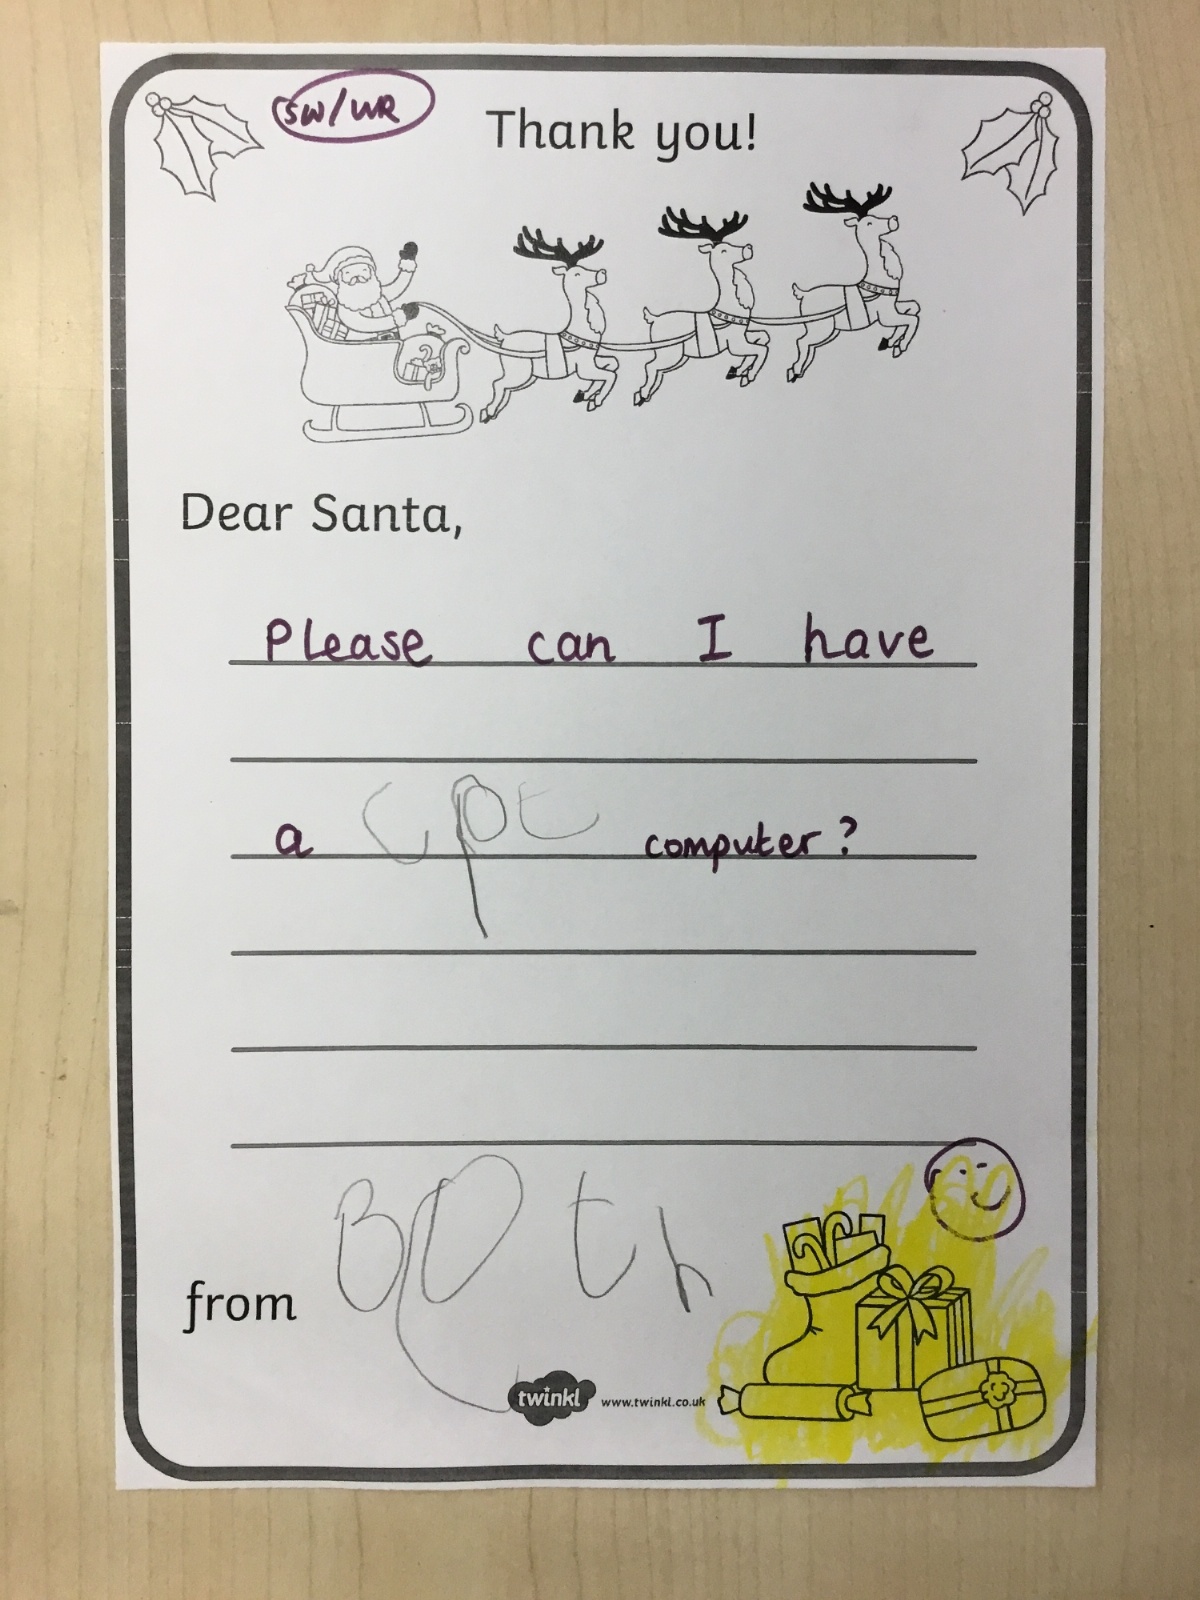 SW/WR
Thank you!
Dear Santa,
Please can I have
a cpt computer?
from Beth
twinkl www.twinkl.co.uk